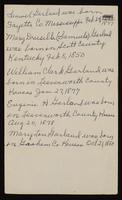 Samuel Garland was born
Fayette Co Mississippi Feb 28
Mary Drusilla (Samuels) Garland
was born in Scott County
Kentucky Feb 5, 1850
William Clark Garland was
born in Leavenworth County
Kansas Jan 27, 1877
Eugenia H Garland was born
in Leavenworth County Kansas
Aug 20, 1878
Mary Lou Garland was born
in Co Kansas Oct 21, 188